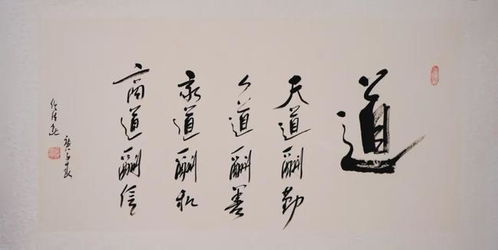 道
天道酬勤
人道酬善
家道酬和
商道酬信